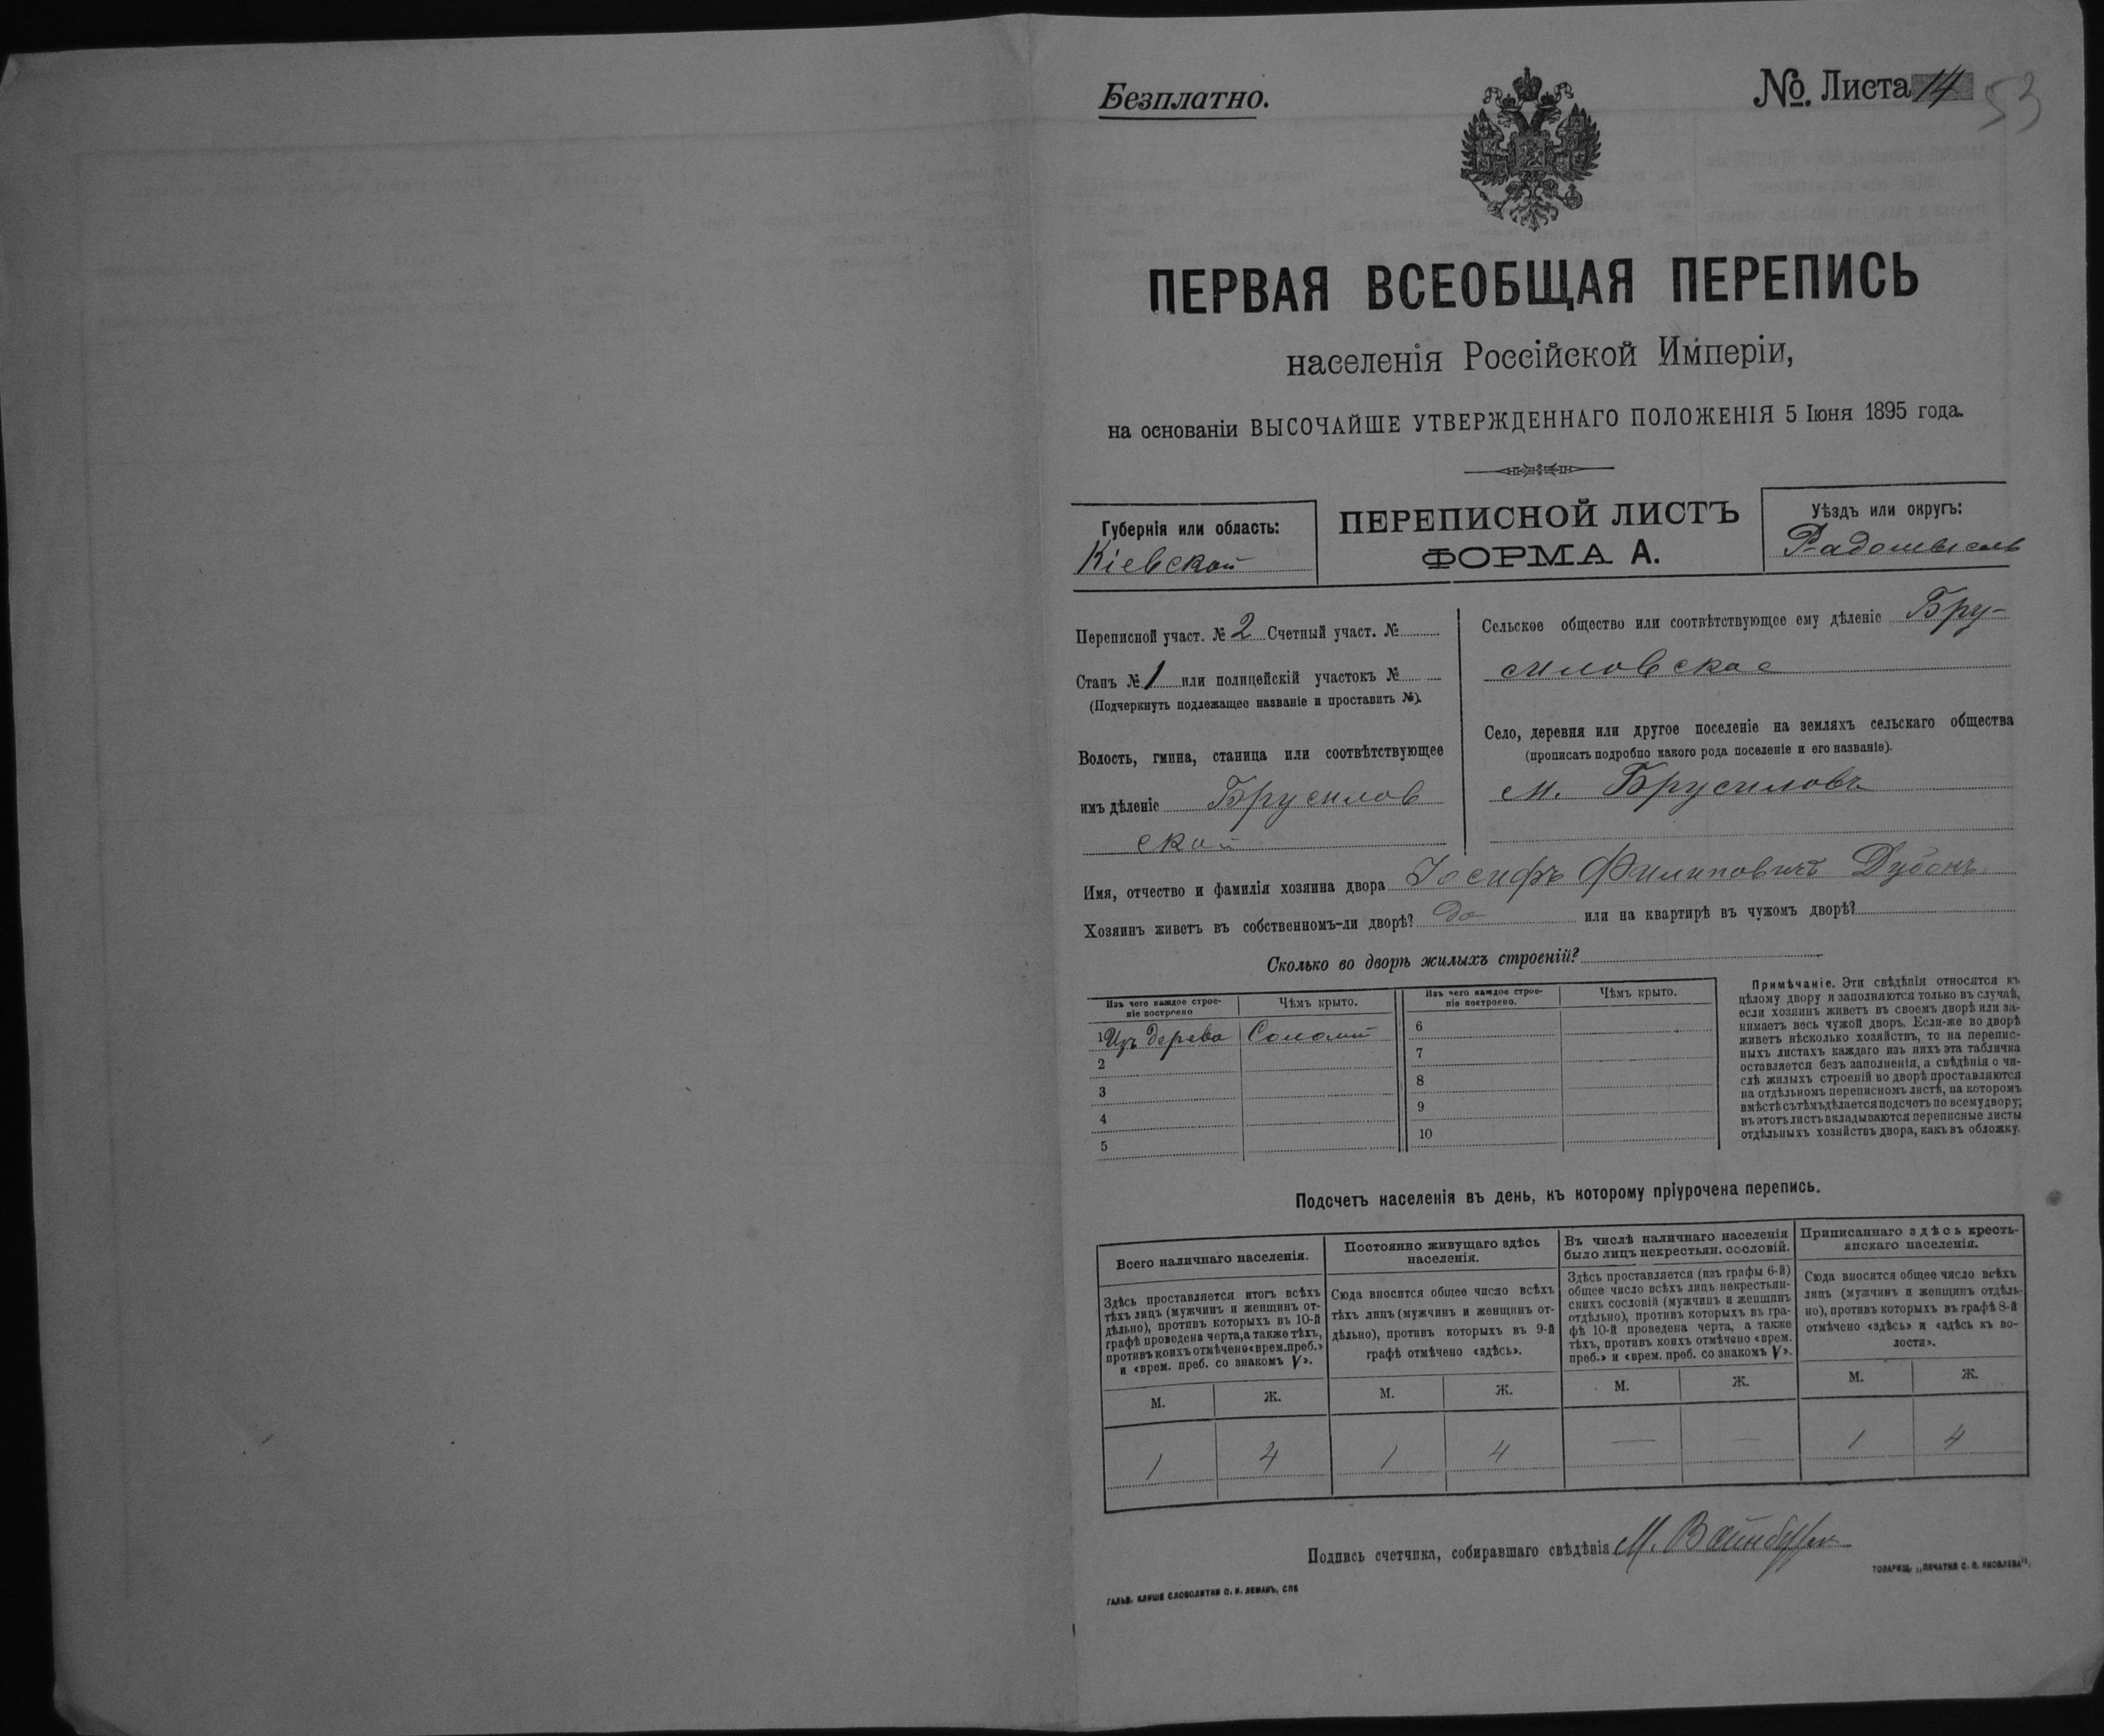 Безплатно.
№. Листа 14
53
ПЕРВАЯ ВСЕОБЩАЯ ПЕРЕПИСЬ
населенія Россійской Имперіи,
на основаніи ВЫСОЧАЙШЕ УТВЕРЖДЕННАГО ПОЛОЖЕНІЯ 5 Іюня 1895 года.
Губернія или область:
Кіевской
ПЕРЕПИСНОЙ ЛИСТЪ
ФОРМА А.
Уѣздъ или округъ:
Радомысль
Переписной участ. № 2 Счетный участ. №
Станъ № 1 или полицейскій участокъ №
(Подчеркнуть подлежащее названіе и проставить №).
Волость, гмина, станица или соотвѣтствующее
имъ дѣленіе Брусилов
ской
Сельское общество или соотвѣтствующее ему дѣленіе Бру-
силовское
Село, деревня или другое поселеніе на земляхъ сельскаго общества
(прописать подробно какого рода поселеніе и его названіе).
м. Брусиловъ
Имя, отчество и фамилія хозяина двора Іосифъ Филиповичъ
Хозяинъ живетъ въ собственномъ-ли дворѣ? да или на квартирѣ въ чужомъ дворѣ?
Сколько во дворѣ жилыхъ строеній?
Изъ чего каждое строе-
ніе построено
Чѣмъ крыто.
1 Изъ дерева Солом
2
3
4
5
Изъ чего каждое строе-
ніе построено.
Чѣмъ крыто.
6
7
8
9
10
Примѣчаніе. Эти свѣдѣнія относятся къ
цѣлому двору и заполняются только въ случаѣ,
если хозяинъ живетъ въ своемъ дворѣ или за-
нимаетъ весь чужой дворъ. Если-же во дворѣ
живетъ нѣсколько хозяйствъ, то на перепис-
ныхъ листахъ каждаго изъ нихъ эта табличка
оставляется безъ заполненія, а свѣдѣнія о чи-
слѣ жилыхъ строеній во дворѣ проставляются
на отдѣльномъ переписномъ листѣ, на которомъ
вмѣстѣ съ тѣмъ дѣлается подсчетъ по всему двору;
въ этотъ листъ вкладываются переписные листы
отдѣльныхъ хозяйствъ двора, какъ въ обложку.
Подсчетъ населенія въ день, къ которому пріурочена перепись.
Всего наличнаго населенія.
Здѣсь проставляется итогъ всѣхъ
тѣхъ лицъ (мужчинъ и женщинъ от-
дѣльно), противъ которыхъ въ 10-й
графѣ проведена черта, а также тѣхъ,
противъ коихъ отмѣчено «врем. преб.»
и «врем. преб. со знакомъ V».
М. Ж.
1 4
Постоянно живущаго здѣсь
населенія.
Сюда вносится общее число всѣхъ
тѣхъ лицъ (мужчинъ и женщинъ от-
дѣльно), противъ которыхъ въ 9-й
графѣ отмѣчено «здѣсь».
М. Ж.
1 4
Въ числѣ наличнаго населенія
было лицъ некрестьян. сословій.
Здѣсь проставляется (изъ графы 6-й)
общее число всѣхъ лицъ некрестьян-
скихъ сословій (мужчинъ и женщинъ
отдѣльно), противъ которыхъ въ гра-
фѣ 10-й проведена черта, а также
тѣхъ, противъ коихъ отмѣчено «врем.
преб.» и «врем. преб. со знакомъ V».
М. Ж.
— —
Приписаннаго здѣсь кресть-
янскаго населенія.
Сюда вносится общее число всѣхъ
лицъ (мужчинъ и женщинъ отдѣль-
но), противъ которыхъ въ графѣ 8-й
отмѣчено «здѣсь» и «здѣсь къ во-
лости».
М. Ж.
1 4
Подпись счетчика, собиравшаго свѣдѣнія М.
ГАЛЬВ. КЛИШЕ СЛОВОЛИТНИ О. И. ЛЕМАНЪ, СПБ
ТОВАРИЩ. „ПЕЧАТНЯ С. П. ЯКОВЛЕВА".